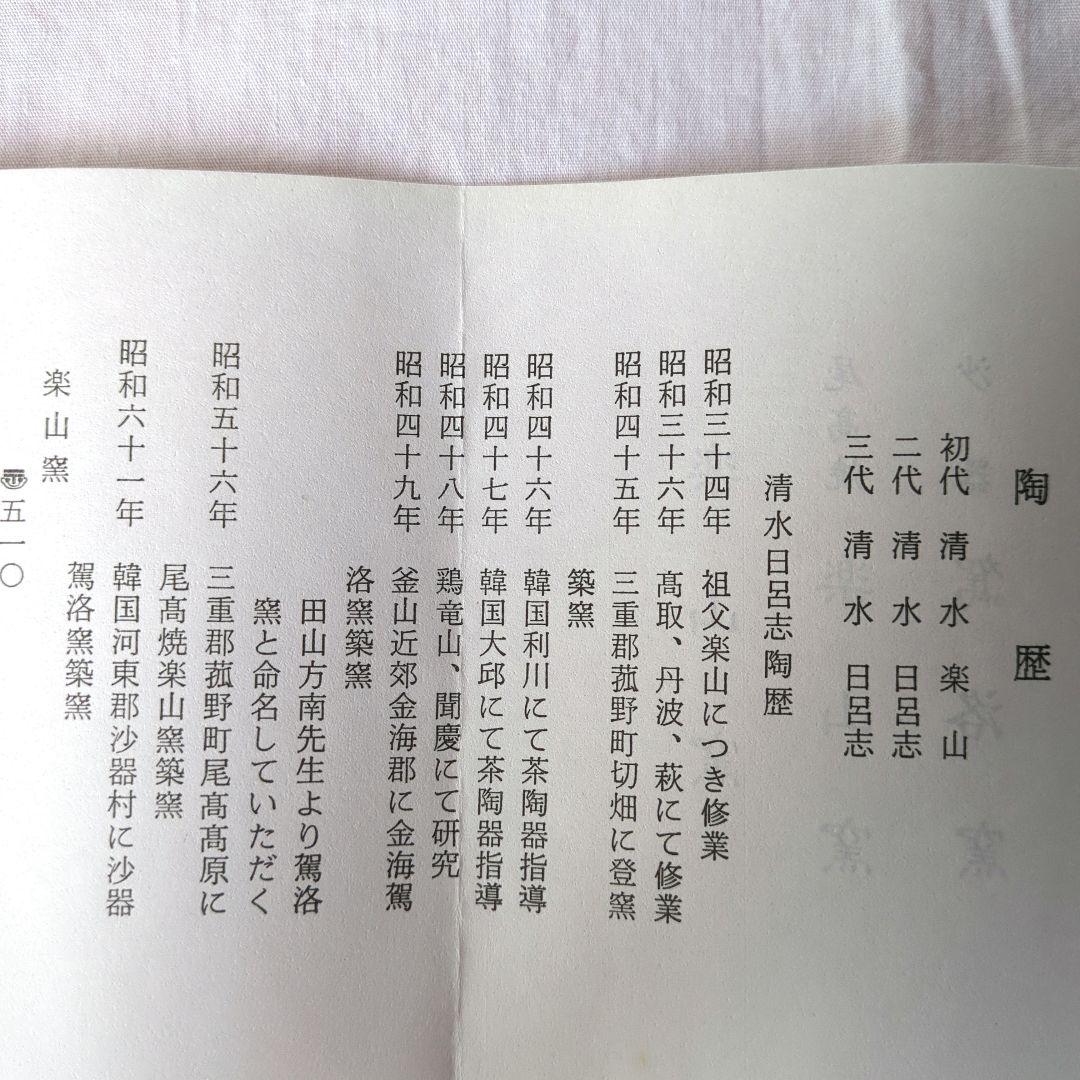 陶歴
初代 清水 楽山
二代 清水 日呂志
三代 清水 日呂志
清水日呂志陶歴
昭和三十四年 祖父楽山につき修業
昭和三十六年 髙取、丹波、萩にて修業
昭和四十五年 三重郡菰野町切畑に登窯
築窯
昭和四十六年 韓国利川にて茶陶器指導
昭和四十七年 韓国大邱にて茶陶器指導
昭和四十八年 鶏竜山、聞慶にて研究
昭和四十九年 釜山近郊金海郡に金海駕
洛窯築窯
田山方南先生より駕洛
窯と命名していただく
昭和五十六年 三重郡菰野町尾髙髙原に
尾髙焼楽山窯築窯
昭和六十一年 韓国河東郡沙器村に沙器
駕洛窯築窯
楽山窯
〠五一〇